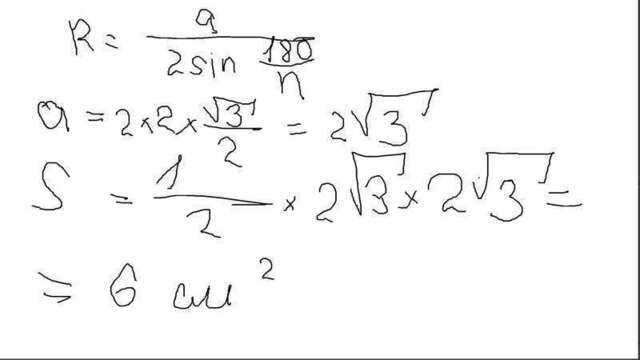 R = a / (2 sin 180/n)
a = 2 × 2 × √3/2 = 2√3
S = 1/2 × 2√3 × 2√3 =
= 6 см²